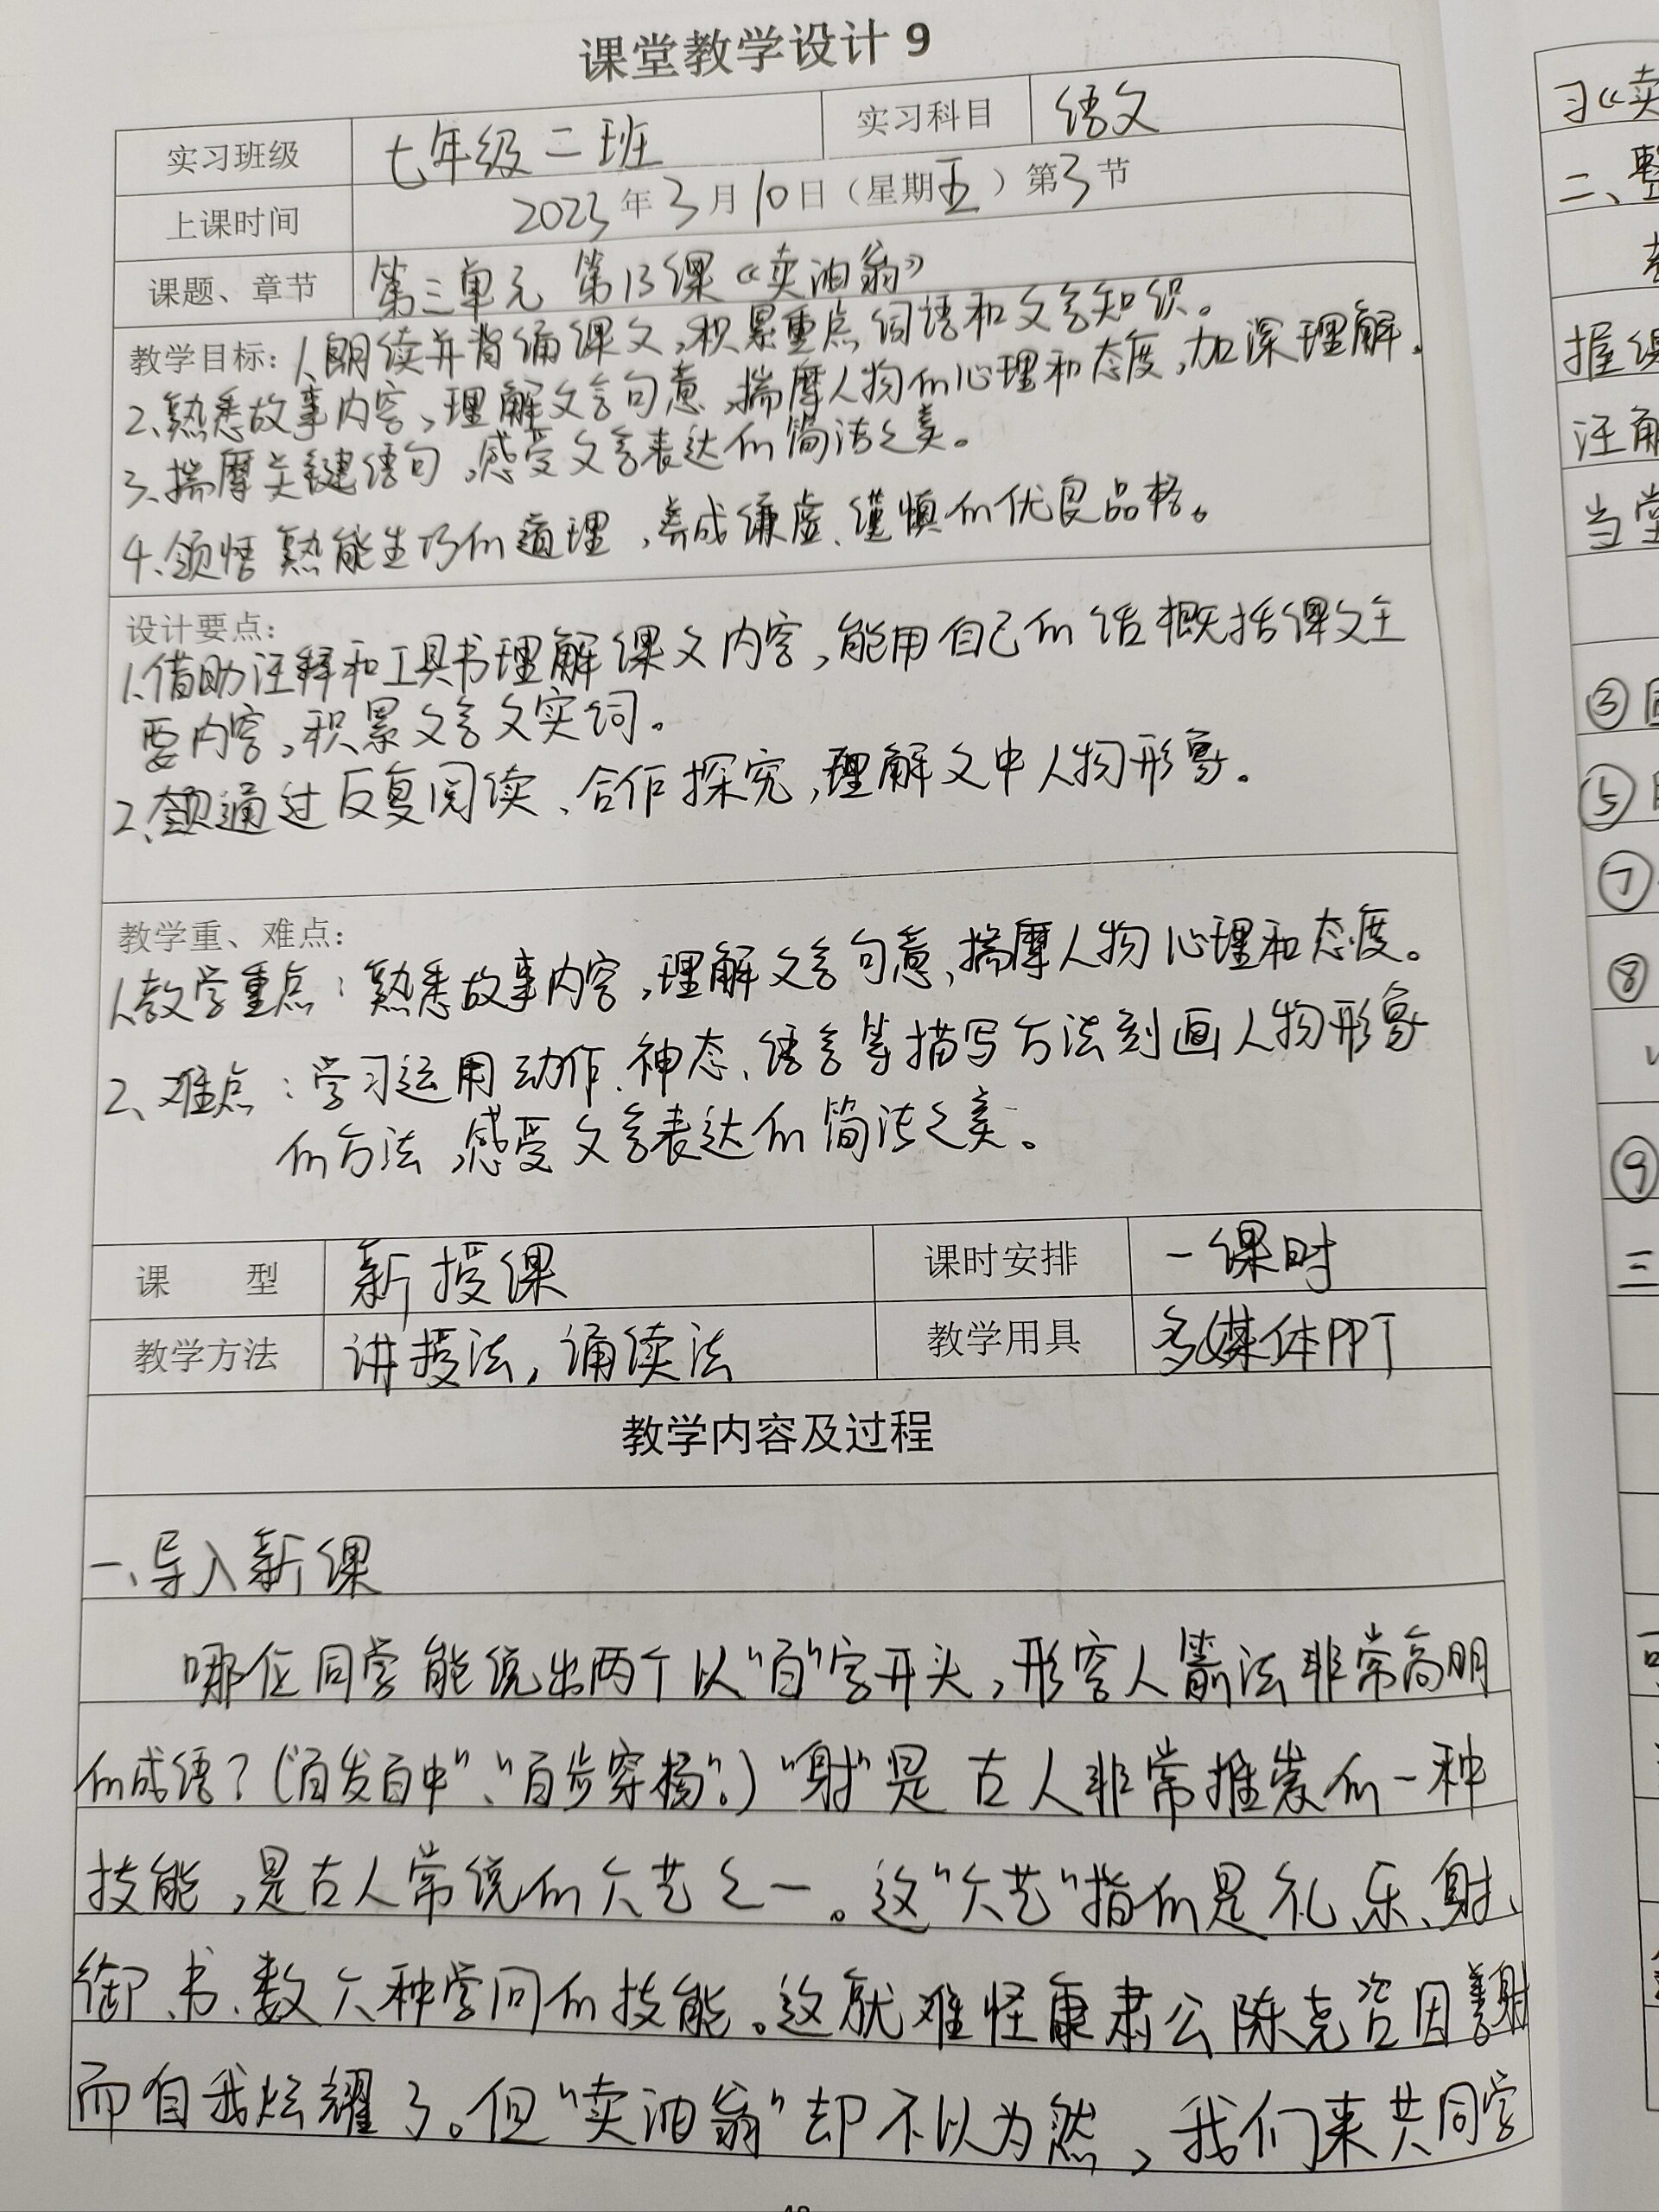 课堂教学设计 9
实习班级 七年级二班 实习科目 语文
上课时间 2023年3月10日（星期五）第3节
课题、章节 第三单元 第13课《卖油翁》
教学目标：1、朗读并背诵课文，积累重点词语和文言知识。
2、熟悉故事内容，理解文言句意，揣摩人物的心理和态度，加深理解。
3、揣摩关键语句，感受文言表达的简洁之美。
4、领悟熟能生巧的道理，养成谦虚、谨慎的优良品格。
设计要点：
1、借助注释和工具书理解课文内容，能用自己的话概括课文主
要内容，积累文言文实词。
2、通过反复阅读、合作探究，理解文中人物形象。
教学重、难点：
1、教学重点：熟悉故事内容，理解文言句意，揣摩人物心理和态度。
2、难点：学习运用动作、神态、语言等描写方法刻画人物形象
的方法，感受文言表达的简洁之美。
课 型 新授课 课时安排 一课时
教学方法 讲授法，诵读法 教学用具 多媒体PPT
教学内容及过程
一、导入新课
哪位同学能说出两个以“百”字开头，形容人箭法非常高明
的成语？（“百发百中”、“百步穿杨”。）“射”是古人非常推崇的一种
技能，是古人常说的六艺之一。这“六艺”指的是礼、乐、射、
御、书、数六种学问的技能。这就难怪康肃公陈尧咨因善射
而自我炫耀了。但“卖油翁”却不以为然，我们来共同学
习《卖
二、整
握课
当堂
③
⑤
⑦
⑧
⑨
三